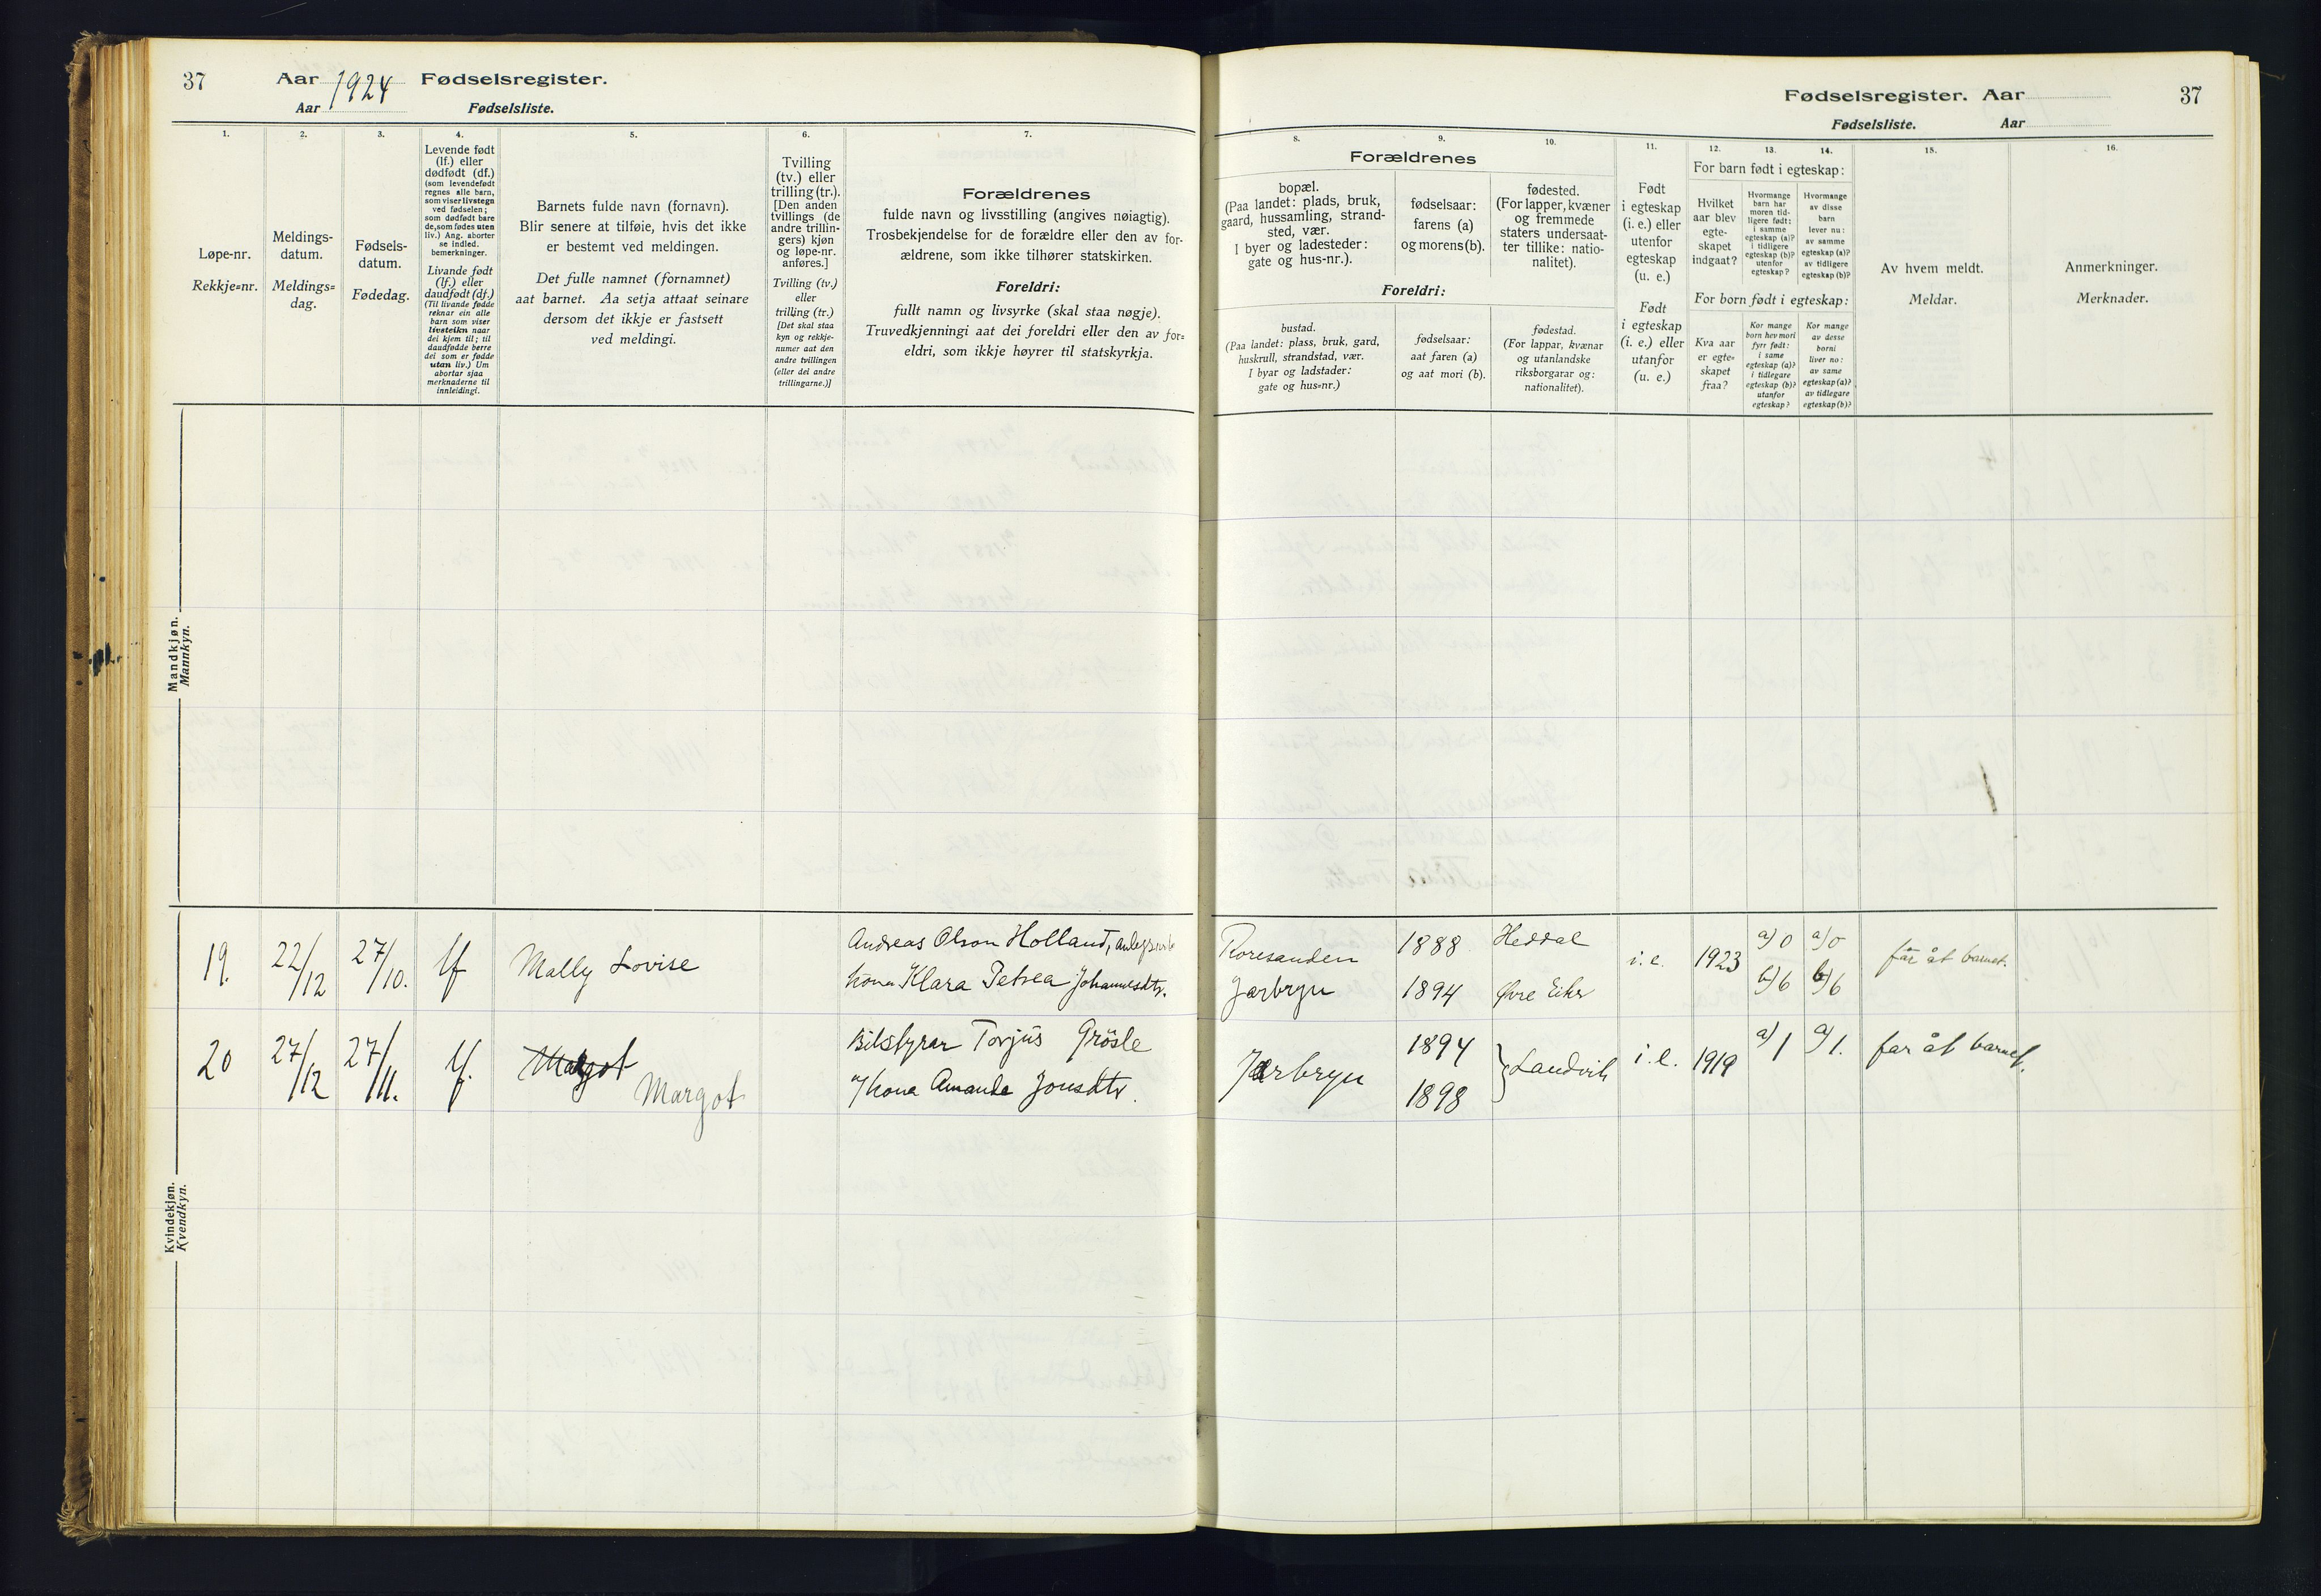 37
Aar 1924 Fødselsregister.
Aar Fødselsliste.
1.
2.
3.
4.
5.
6.
7.
Løpe-nr.
Rekkje=nr.
Meldings-
datum.
Meldings=
dag.
Fødsels-
datum.
Fødedag.
Levende født
(lf.) eller
dødfødt (df.)
(som levendefødt
regnes alle barn,
som viser livstegn
ved fødselen;
som dødfødt bare
de, som fødes uten
liv.) Ang. aborter
se indled.
bemerkninger.
Livande født
(lf.) eller
daudfødt (df.)
(Til livande fødde
reknar ein alle
barn som viser
livsteikn naar
dei kjem til; til
daudfødde berre
dei som er fødde
utan liv.) Um
abortar sjaa
merknaderne til
innleidingi.
Barnets fulde navn (fornavn).
Blir senere at tilføie, hvis det ikke
er bestemt ved meldingen.
Det fulle namnet (fornamnet)
aat barnet. Aa setja attaat seinare
dersom det ikkje er fastsett
ved meldingi.
Tvilling
(tv.) eller
trilling (tr.).
[Den anden
tvillings (de
andre trillin-
gers) kjøn
og løpe-nr.
anføres.]
Tvilling (tv.)
eller
trilling (tr.)
[Det skal staa
kyn og rekkje-
numer aat den
andre tvillingen
(eller dei andre
trillingarne.)]
Forældrenes
fulde navn og livsstilling (angives nøiagtig).
Trosbekjendelse for de forældre eller den av for-
ældrene, som ikke tilhører statskirken.
Foreldri:
fullt namn og livsyrke (skal staa nøgje).
Truvedkjenningi aat dei foreldri eller den av for=
eldri, som ikkje høyrer til statskyrkja.
Mandkjøn.
Mannkyn.
19. 22/12 27/10. lf Mally Lovise
Andreas Olson Holland,
kona Klara Petrea Johannesdtr.
20 27/12 27/11. lf. Margot
Margot
Bilstyrar Torjus Grösle
o/kona Amanda Jonsdtr.
Kvindekjøn.
Kvendkyn.
Fødselsregister. Aar
37
Fødselsliste. Aar
8.
9.
10.
11.
12.
13.
14.
15.
16.
Forældrenes
bopæl.
(Paa landet: plads, bruk,
gaard, hussamling, strand-
sted, vær.
I byer og ladesteder:
gate og hus-nr.).
fødselsaar:
farens (a)
og morens (b).
fødested.
(For lapper, kvæner
og fremmede
staters undersaat-
ter tillike: natio-
nalitet).
Foreldri:
bustad.
(Paa landet: plass, bruk, gard,
huskrull, strandstad, vær.
I byar og ladstader:
gate og hus=nr.)
fødselsaar:
aat faren (a)
og aat mori (b).
fødestad.
(For lappar, kvænar
og utanlandske
riksborgarar og:
nationalitet).
Født
i egteskap
(i. e.) eller
utenfor
egteskap
(u. e.)
Født
i egteskap
(i. e.) eller
utanfor
(u. e.)
For barn født i egteskap:
Hvilket
aar blev
egte-
skapet
indgaat?
Hvormange
barn har
moren tid-
ligere født:
i samme
egteskap (a)?
i tidligere
egteskap (b)?
utenfor
egteskap?
Hvormange
av disse
barn
lever nu:
av samme
egteskap (a)?
av tidligere
egteskap (b)?
For born født i egteskap:
Kva aar
er egte=
skapet
fraa?
Kor mange
born hev mori
fyrr født:
i same
egteskap (a)?
i tidlegare
egteskap (b)?
utanfor
egteskap?
Kor mange
av desse
borni
liver no:
av same
egteskap (a)?
av tidlegare
egteskap (b)?
Av hvem meldt.
Meldar.
Anmerkninger.
Merknader.
Roresanden 1888 Heddal
i. e. 1923 a) 0 a) 0 far åt barnet.
Jarbryn 1894 Øvre Eiker b) 6 b) 6
Jarbryn 1894 Landvik i. e. 1919 a) 1 a) 1. far åt barnet.
1898